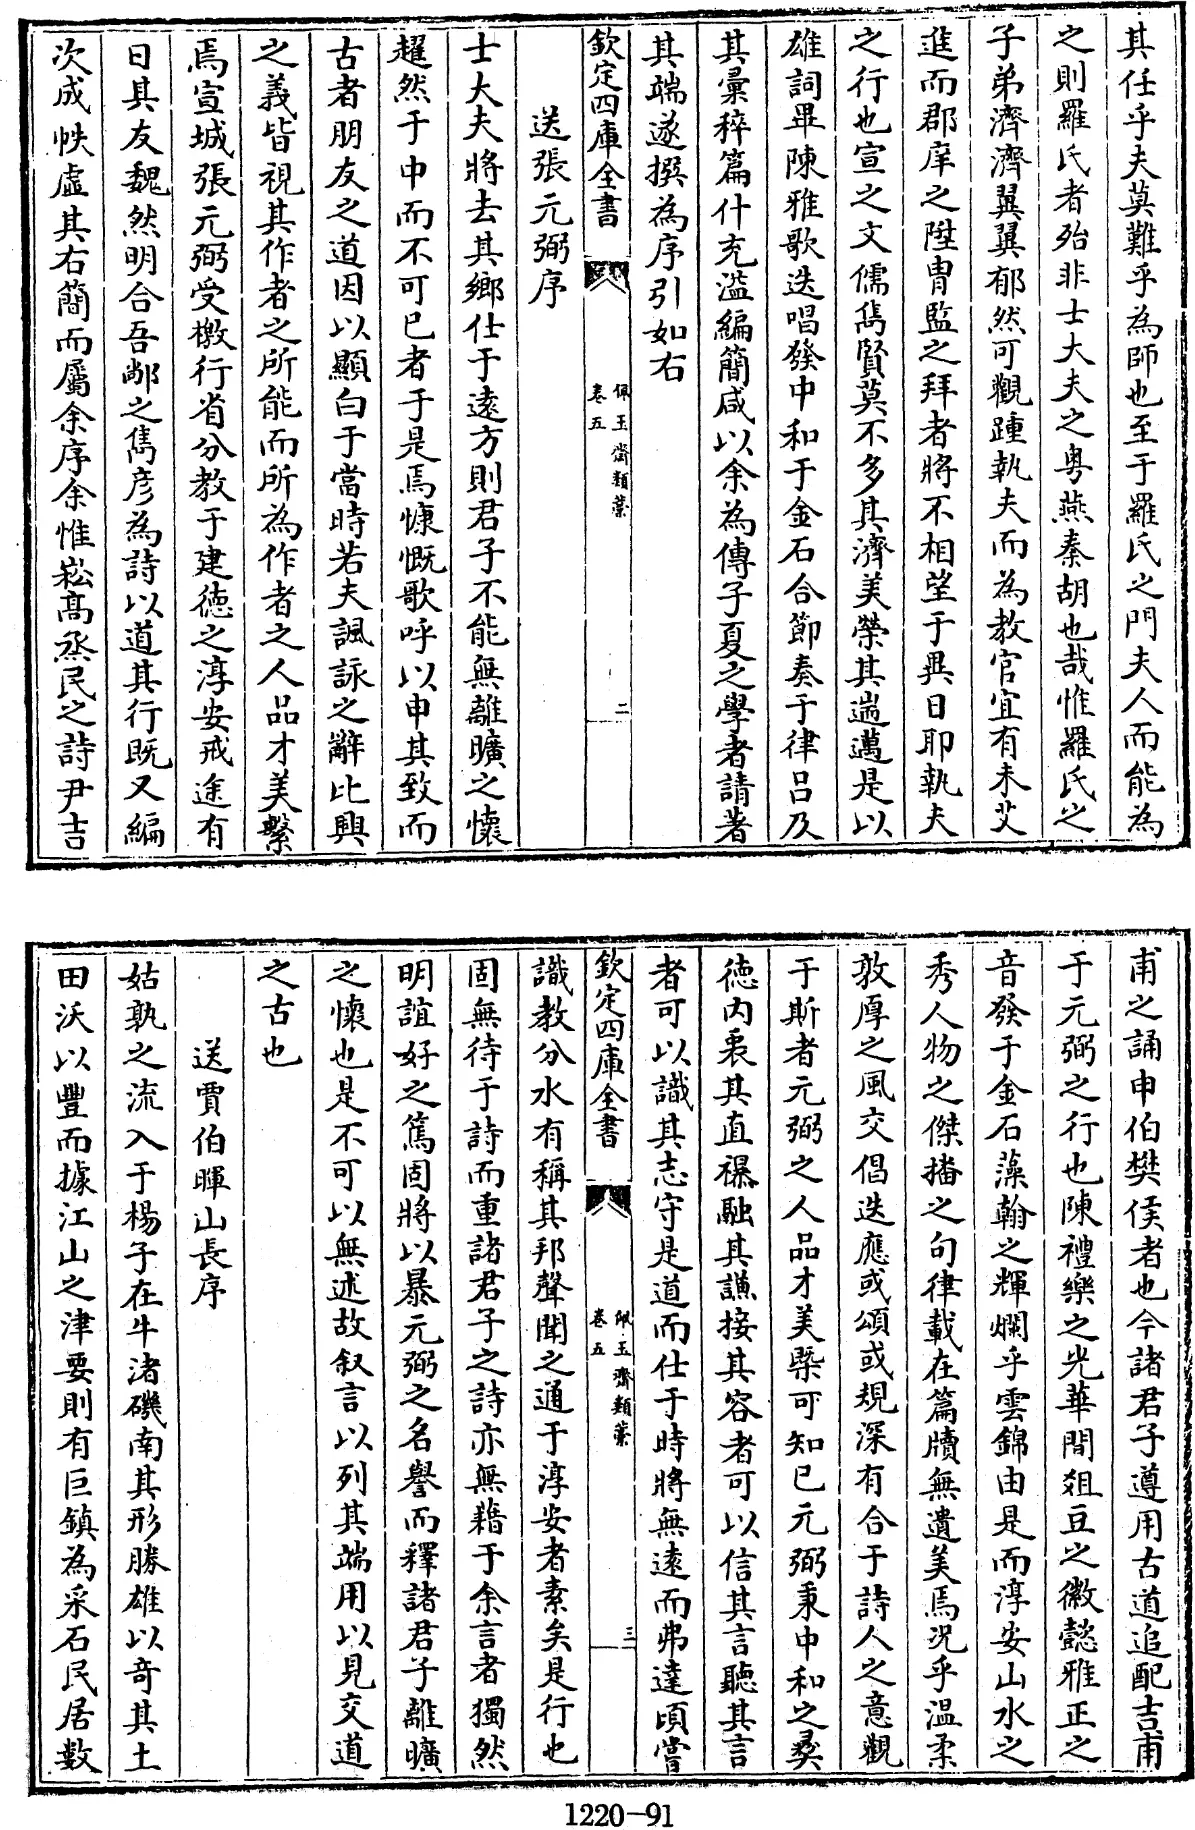 其任乎夫莫難乎為師也至于羅氏之門夫人而能為
之則羅氏者殆非士大夫之粤燕秦胡也哉惟羅氏之
子弟濟濟翼翼郁然可觀踵執夫而為教官宜有未艾
進而郡庠之陞胄監之拜者將不相望于異日耶執夫
之行也宣之文儒雋賢莫不多其濟美榮其遄邁是以
雄詞畢陳雅歌迭唱發中和于金石合節奏于律呂及
其彙稡篇什充溢編簡咸以余為傳子夏之學者請著
其端遂撰為序引如右
欽定四庫全書
佩玉齋類藁
卷五
二
送張元弼序
士大夫將去其鄉仕于遠方則君子不能無離曠之懷
趯然于中而不可已者于是焉慷慨歌呼以申其致而
古者朋友之道因以顯白于當時若夫諷詠之辭比興
之義皆視其作者之所能而所為作者之人品才美繫
焉宣城張元弼受檄行省分教于建徳之淳安戒途有
日其友魏然明合吾鄉之雋彦為詩以道其行既又編
次成帙虛其右簡而屬余序余惟崧高烝民之詩尹吉
甫之誦申伯樊侯者也今諸君子遵用古道追配吉甫
于元弼之行也陳禮樂之光華間俎豆之徽懿雅正之
音發于金石藻翰之輝爛乎雲錦由是而淳安山水之
秀人物之傑播之句律載在篇牘無遺美焉況乎温柔
敦厚之風交倡迭應或頌或規深有合于詩人之意觀
于斯者元弼之人品才美槩可知已元弼秉中和之彝
徳内裹其直襮融其謙接其容者可以信其言聽其言
者可以識其志守是道而仕于時將無遠而弗達頃嘗
欽定四庫全書
佩玉齋類藁
卷五
三
識教分水有稱其邦聲聞之通于淳安者素矣是行也
固無待于詩而重諸君子之詩亦無藉于余言者獨然
明誼好之篤固將以暴元弼之名譽而釋諸君子離曠
之懷也是不可以無述故叙言以列其端用以見交道
之古也
送賈伯暉山長序
姑孰之流入于楊子在牛渚磯南其形勝雄以奇其土
田沃以豐而據江山之津要則有巨鎮為采石民居數
1220-91